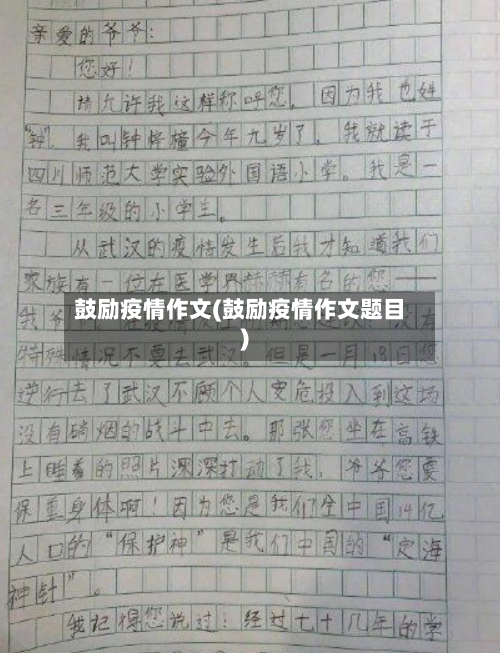 亲爱的爷爷：
您好！
请允许我这样称呼您，因为我也姓
“钟”。我叫钟梓橦今年九岁了，我就读于
四川师范大学实验外国语小学。我是一
名三年级的小学生。
从武汉的疫情发生后我才知道我们
家族有一位在医学界赫赫有名的您——
鼓励疫情作文(鼓励疫情作文题目
)
特殊情况不要去武汉。但是一月18日您
逆行去了武汉不顾个人安危投入到这场
没有硝烟的战斗中去。那张您坐在高铁
上睡着的照片深深打动了我，爷爷您要
保重身体啊！因为您是我们全中国14亿
人口的“保护神”是我们中国的“定海
神针”。
我记得您说过：经过七十几年的学